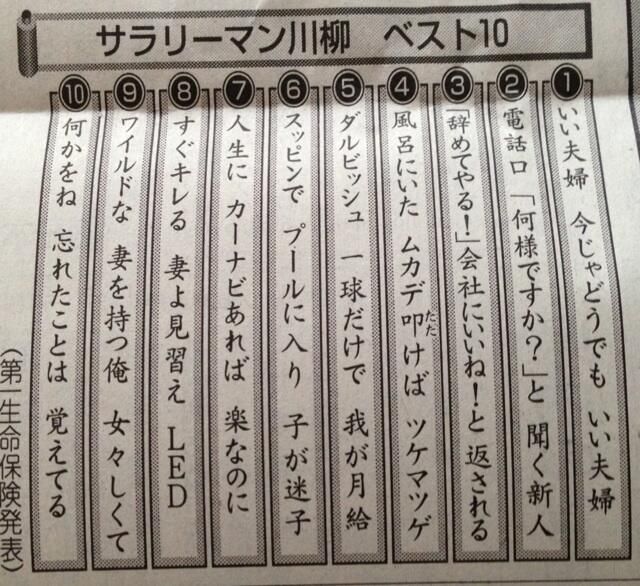 サラリーマン川柳 ベスト10
① いい夫婦 今じゃどうでも いい夫婦
② 電話口 「何様ですか?」と 聞く新人
③ 「辞めてやる!」会社にいいね!と 返される
④ 風呂にいた ムカデ叩(たた)けば ツケマツゲ
⑤ ダルビッシュ 一球だけで 我が月給
⑥ スッピンで プールに入り 子が迷子
⑦ 人生に カーナビあれば 楽なのに
⑧ すぐキレる 妻よ見習え LED
⑨ ワイルドな 妻を持つ俺 女々しくて
⑩ 何かをね 忘れたことは 覚えてる
(第一生命保険発表)